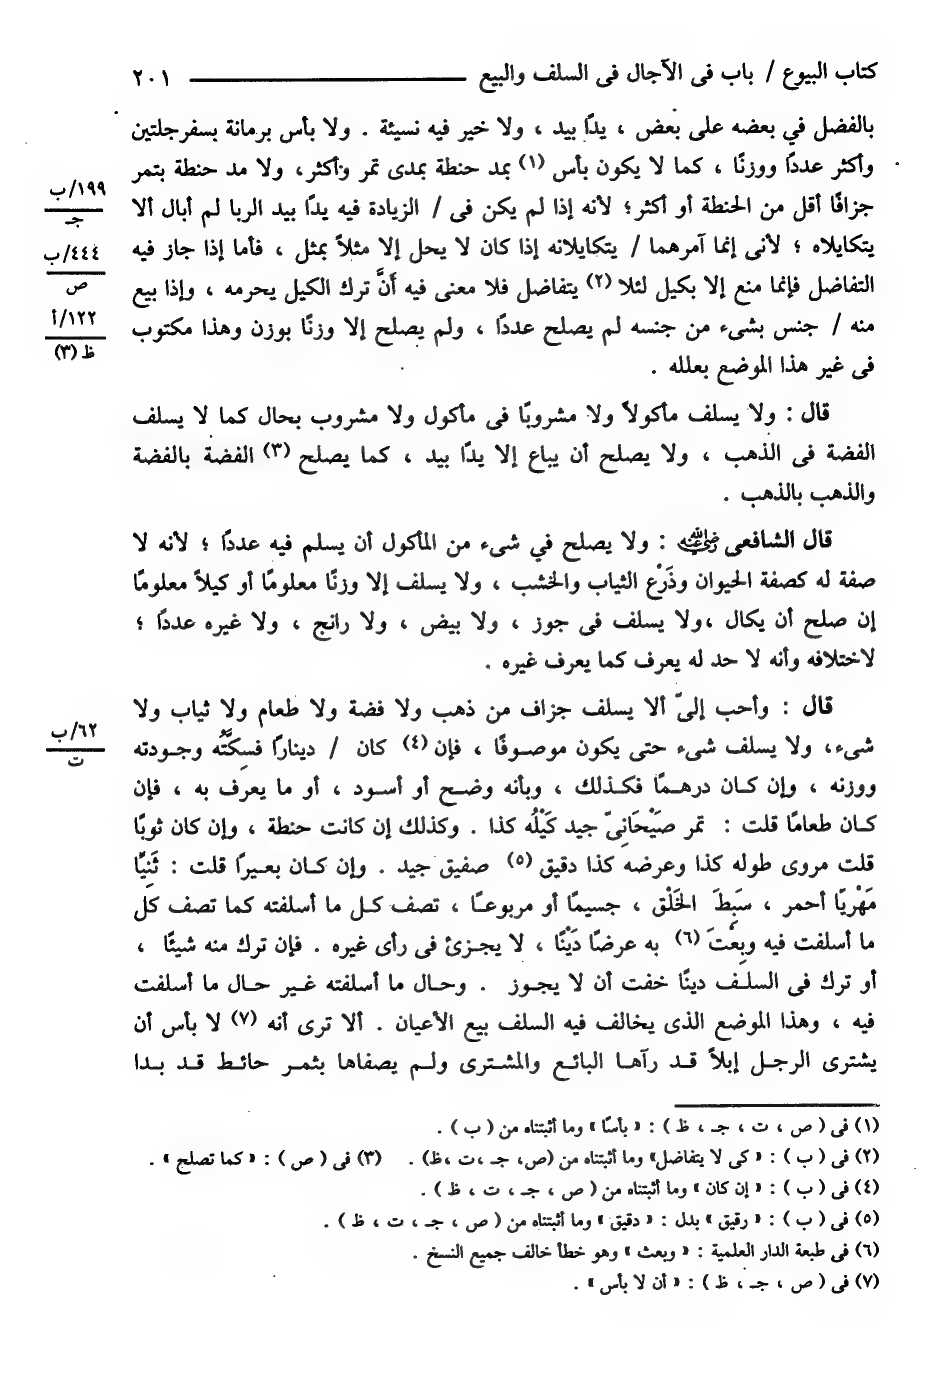 كتاب البيوع / باب فى الآجال فى السلف والبيع ٢٠١
بالفضل في بعضه على بعض ، يدًا بيد ، ولا خير فيه نسيئة . ولا بأس برمانة بسفرجلتين
وأكثر عددًا ووزنًا ، كما لا يكون بأس (١) بمد حنطة بمدى تمر وأكثر، ولا مد حنطة بتمر
جزافًا أقل من الحنطة أو أكثر؛ لأنه إذا لم يكن فى / الزيادة فيه يدًا بيد الربا لم أبال ألا
يتكايلاه ؛ لأنى إنما آمرهما / يتكايلانه إذا كان لا يحل إلا مثلاً بمثل ، فأما إذا جاز فيه
التفاضل فإنما منع إلا بكيل لئلا (٢) يتفاضل فلا معنى فيه أَنَّ ترك الكيل يحرمه ، وإذا بيع
منه / جنس بشىء من جنسه لم يصلح عددًا ، ولم يصلح إلا وزنًا بوزن وهذا مكتوب
فى غير هذا الموضع بعلله .
١٩٩/ب
جـ
٤٤٤/ب
ص
١٢٢/أ
ظ (٣)
قال : ولا يسلف مأكولاً ولا مشروبًا فى مأكول ولا مشروب بحال كما لا يسلف
الفضة فى الذهب ، ولا يصلح أن يباع إلا يدًا بيد ، كما يصلح (٣) الفضة بالفضة
والذهب بالذهب .
قال الشافعى رضي الله عنه : ولا يصلح في شىء من المأكول أن يسلم فيه عددًا ؛ لأنه لا
صفة له كصفة الحيوان وذَرْع الثياب والخشب ، ولا يسلف إلا وزنًا معلومًا أو كيلاً معلومًا
إن صلح أن يكال ،ولا يسلف فى جوز ، ولا بيض ، ولا رانج ، ولا غيره عددًا ؛
لاختلافه وأنه لا حد له يعرف كما يعرف غيره .
قال : وأحب إلىّ ألا يسلف جزاف من ذهب ولا فضة ولا طعام ولا ثياب ولا
شىء، ولا يسلف شىء حتى يكون موصوفًا ، فإن (٤) كان / دينارًا فسِكَّتُه وجودته
ووزنه ، وإن كان درهمًا فكذلك ، وبأنه وضح أو أسود ، أو ما يعرف به ، فإن
كان طعامًا قلت : تمر صَيْحَانِىّ جيد كَيْلُه كذا . وكذلك إن كانت حنطة ، وإن كان ثوبًا
قلت مروى طوله كذا وعرضه كذا دقيق (٥) صفيق جيد . وإن كان بعيرًا قلت : ثَنِيًّا
مَهْرِيًا أحمر ، سَبِطَ الخَلْق ، جسيمًا أو مربوعًا ، تصف كل ما أسلفته كما تصف كل
ما أسلفت فيه وبِعْتَ (٦) به عرضًا دَيْنًا ، لا يجزئ فى رأى غيره . فإن ترك منه شيئًا ،
أو ترك فى السلف دينًا خفت أن لا يجوز . وحال ما أسلفته غير حال ما أسلفت
فيه ، وهذا الموضع الذى يخالف فيه السلف بيع الأعيان . ألا ترى أنه (٧) لا بأس أن
يشترى الرجل إبلاً قد رآها البائع والمشترى ولم يصفاها بثمر حائط قد بدا
٦٢/ب
ت
(١) فى ( ص ، ت ، جـ ، ظ ) : « بأسًا » وما أثبتناه من ( ب ) .
(٢) فى ( ب ) : « كى لا يتفاضل» وما أثبتناه من (ص، جـ ،ت ،ظ) . (٣) فى ( ص ) : « كما تصلح » .
(٤) فى ( ب ) : « إن كان » وما أثبتناه من ( ص ، جـ ، ت ، ظ ) .
(٥) فى ( ب ) : « رقيق » بدل : « دقيق » وما أثبتناه من ( ص ، جـ ، ت ، ظ ) .
(٦) فى طبعة الدار العلمية : « وبعث » وهو خطأ خالف جميع النسخ .
(٧) فى ( ص ، جـ ، ظ ) : « أن لا بأس » .